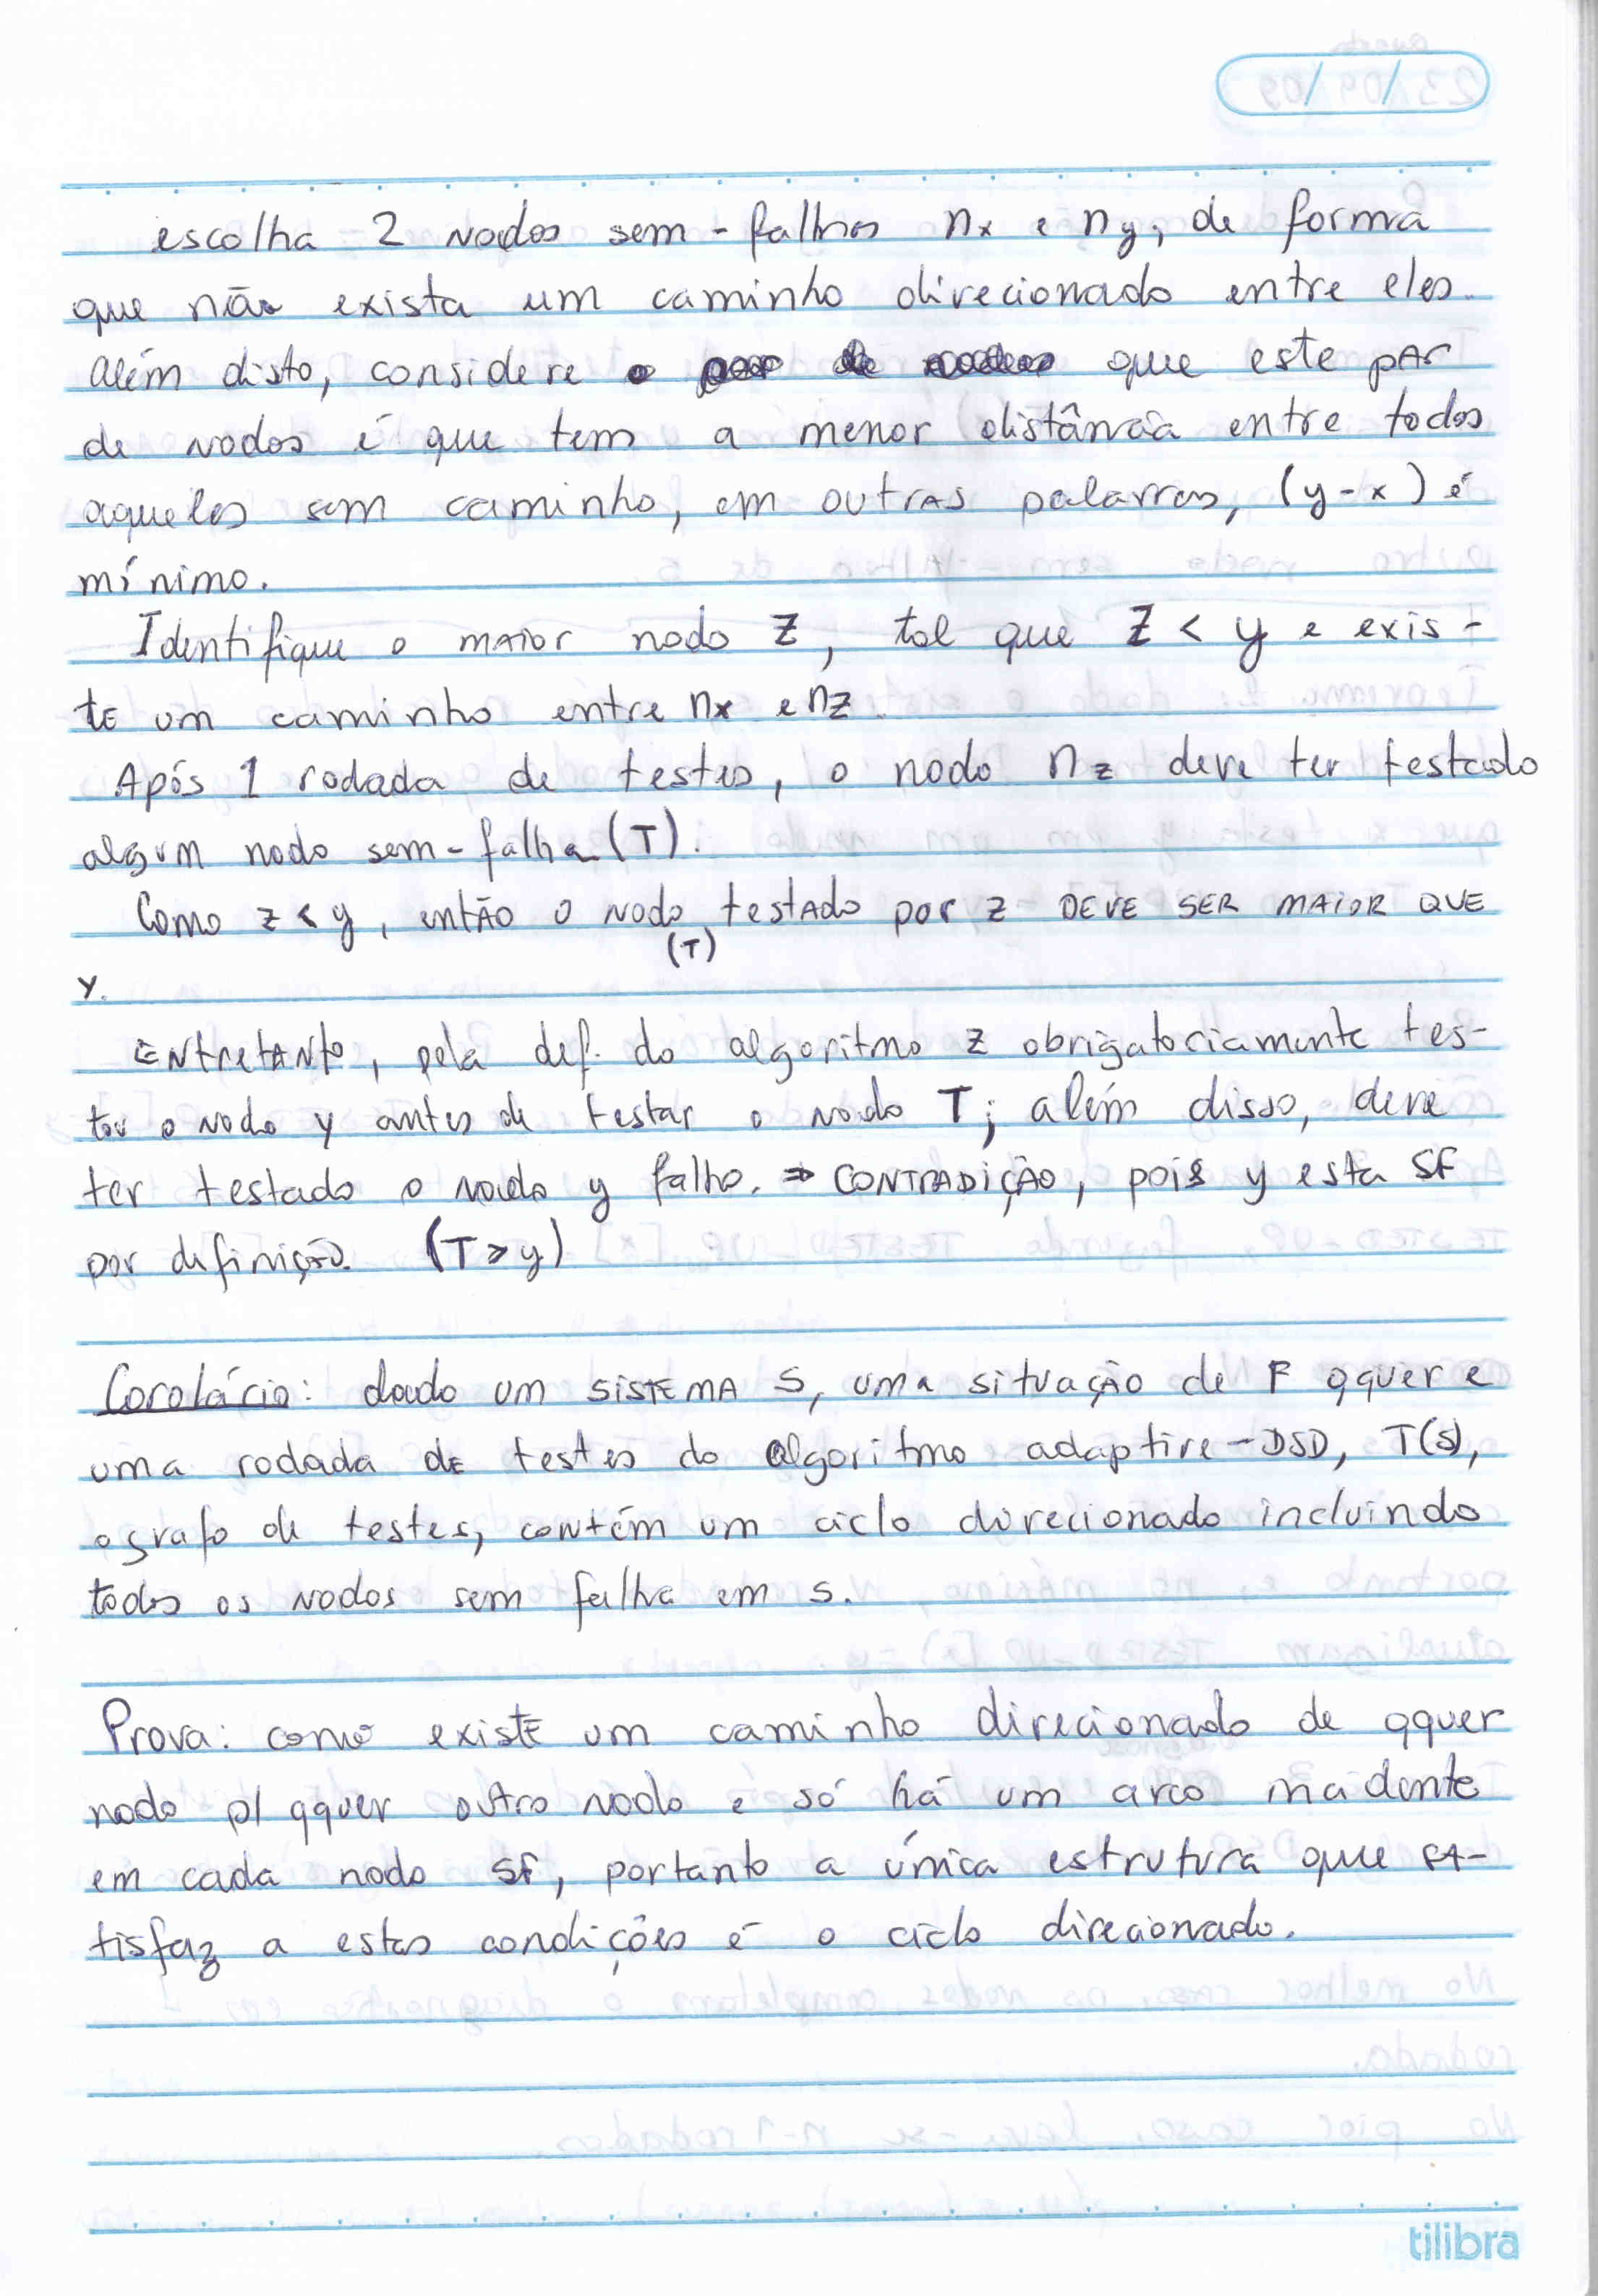 escolha 2 nodos sem-falhas nx e ny, de forma
que não exista um caminho direcionado entre eles.
Além disto, considere que este par
de nodos é que tem a menor distância entre todos
aqueles sem caminho, em outras palavras, (y-x) é
mínimo.
Identifique o maior nodo Z, tal que Z < y e exis-
te um caminho entre nx e nz.
Após 1 rodada de testes, o nodo nz deve ter testado
algum nodo sem-falha (T).
Como z < y, então o nodo testado por z DEVE SER MAIOR QUE
(T)
y.
Entretanto, pela def. do algoritmo z obrigatoriamente tes-
tou o nodo y antes de testar o nodo T; além disso, deve
ter testado o nodo y falho. ⇒ CONTRADIÇÃO, pois y esta SF
por definição. (T > y)
Corolário: dado um sistema S, uma situação de F qquer e
uma rodada de testes do algoritmo adaptive-DSD, T(S),
o grafo de testes, contém um ciclo direcionado incluindo
todos os nodos sem falha em S.
Prova: como existe um caminho direcionado de qquer
nodo p/ qquer outro nodo e só há um arco incidente
em cada nodo SF, portanto a única estrutura que sa-
tisfaz a estas condições é o ciclo direcionado.
tilibra